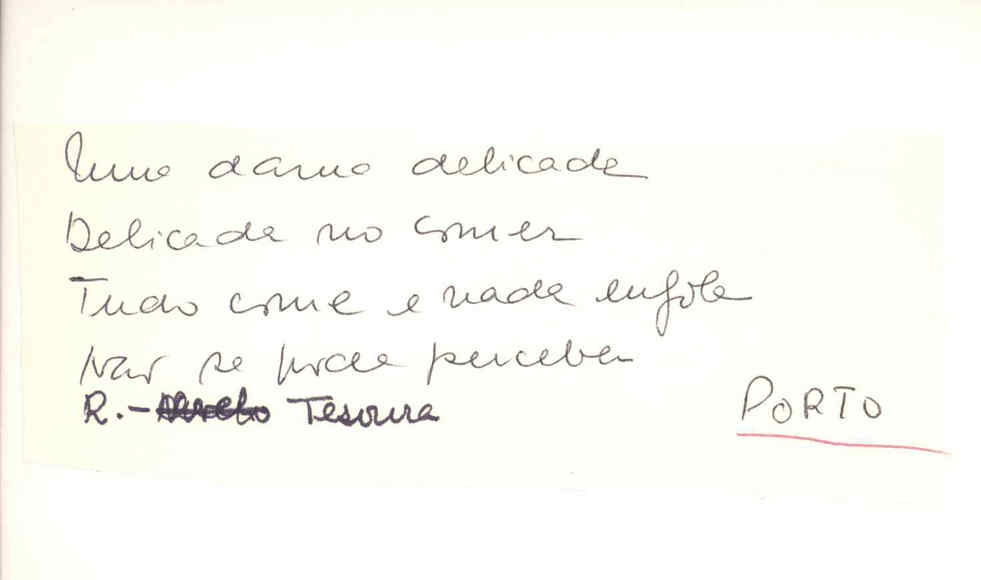 Uma dama delicada
Delicada no comer
Tudo come e nada engole
Não se pode perceber
R.- Tesoura
PORTO